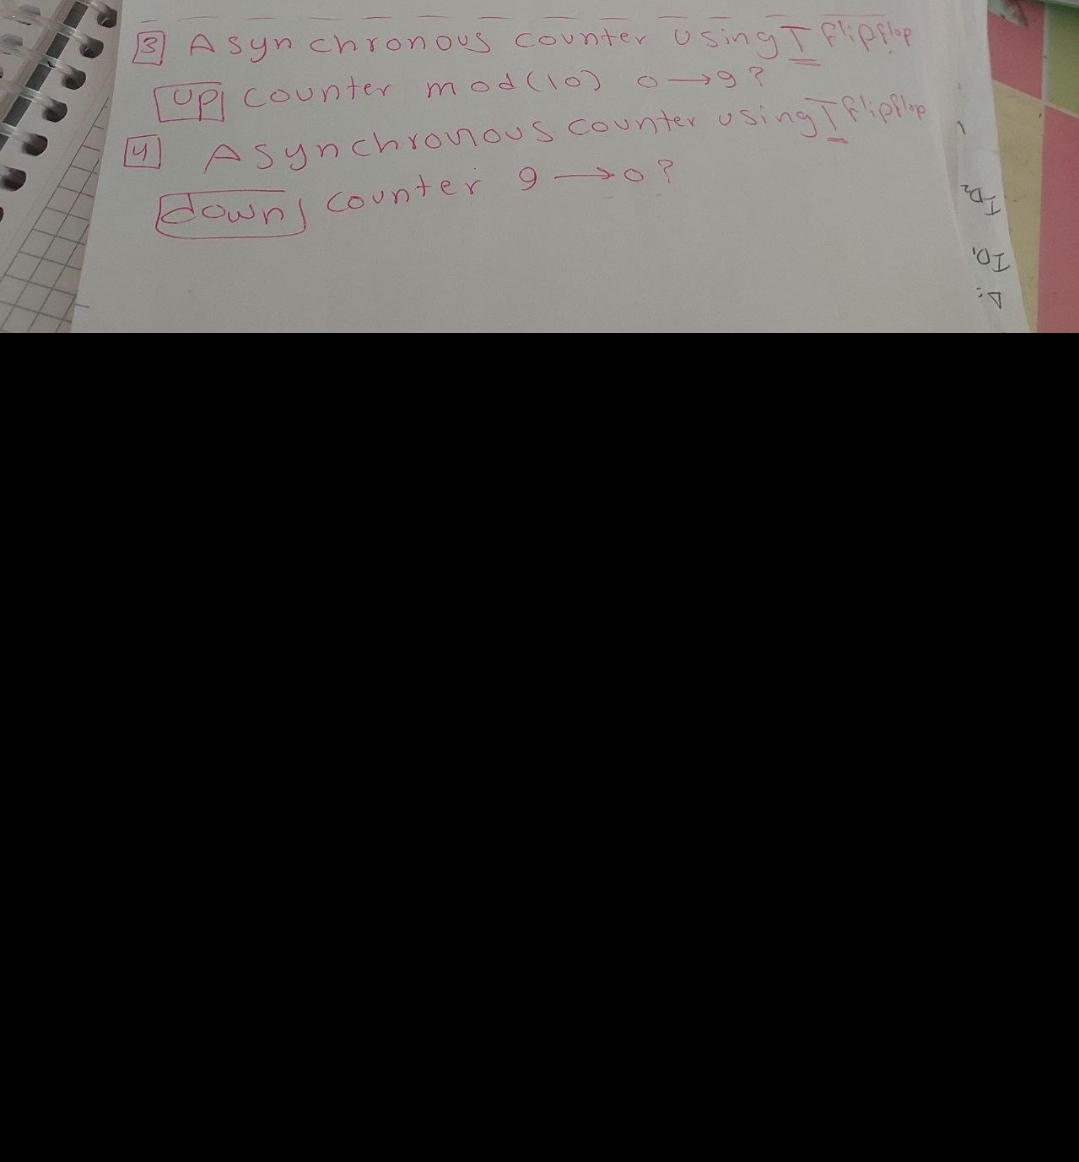 3 Asynchronous counter using T flipflop
UP counter mod(10) 0→9?
4 Asynchronous counter using T flipflop
down counter 9→0?
ID2
ID1